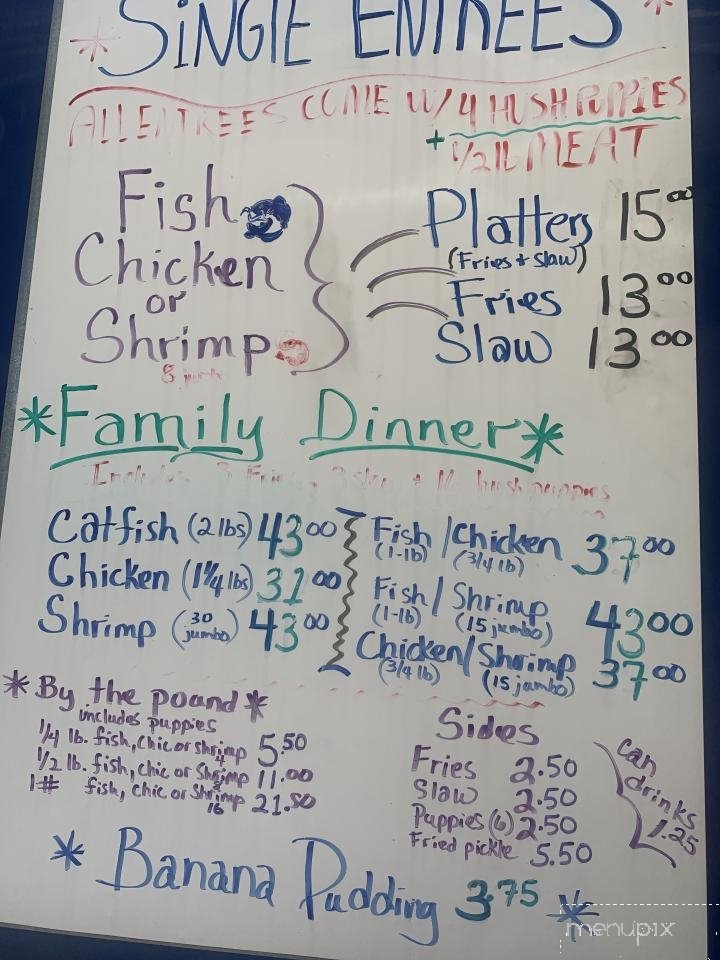 * SINGLE ENTREES *
ALL ENTREES COME W/ 4 HUSH PUPPIES
+ 1/2 lb MEAT
Fish
Chicken
or
Shrimp
8 jumbo
Platters 15.00
(Fries + Slaw)
Fries 13.00
Slaw 13.00
*Family Dinner*
Includes 3 Fries, 3 slaw + 16 hushpuppies
Catfish (2 lbs) 43.00
Chicken (1 1/4 lbs) 31.00
Shrimp (30 jumbo) 43.00
Fish / Chicken 37.00
(1-lb) (3/4 lb)
Fish / Shrimp 43.00
(1-lb) (15 jumbo)
Chicken / Shrimp 37.00
(3/4 lb) (15 jambo)
* By the pound *
includes puppies
1/4 lb. fish, chic or shrimp 5.50
4
1/2 lb. fish, chic or Shrimp 11.00
8
1# fish, chic or Shrimp 21.50
16
Sides
Fries 2.50
Slaw 2.50
Puppies (6) 2.50
Fried pickle 5.50
Can
drinks
1.25
* Banana Pudding 3.75 *
menupix